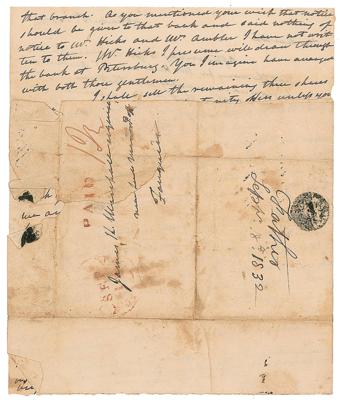 that branch. As you mentioned your wish that notice
should be given to that bank and said nothing of
notice to Mr Hicks and Mr Ambler I have not writ
ten to them. Mr Hicks I presume will draw through
the bank at Petersburg. You I imagine have arranged
with both those gentlemen.
I shall sell the remaining three shares
unless you
PAID
James K Marshall esquire
Fauquier
Father
Septr 8th 1832